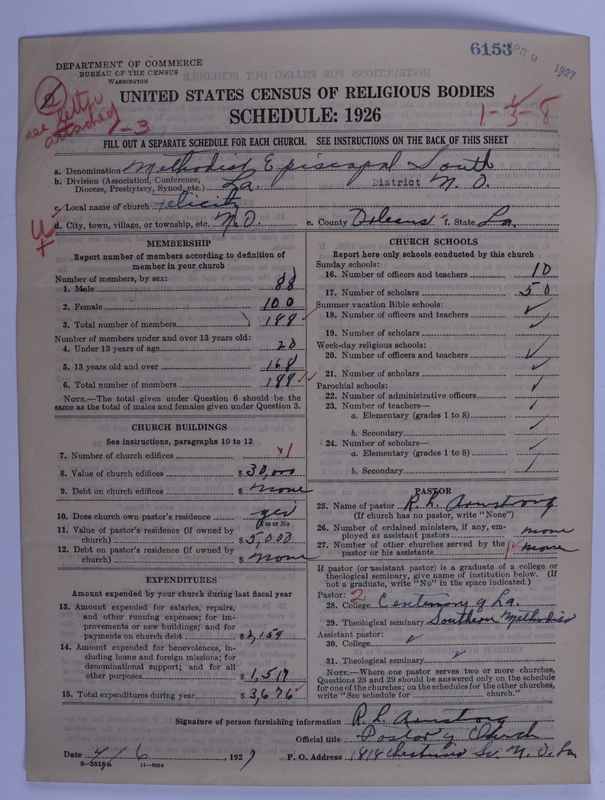 6153 APR 9 1927
DEPARTMENT OF COMMERCE
BUREAU OF THE CENSUS
WASHINGTON
see letter attached
1-3
UNITED STATES CENSUS OF RELIGIOUS BODIES
SCHEDULE: 1926
1-3-8
FILL OUT A SEPARATE SCHEDULE FOR EACH CHURCH. SEE INSTRUCTIONS ON THE BACK OF THIS SHEET
a. Denomination Methodist Episcopal South
b. Division (Association, Conference, Diocese, Presbytery, Synod, etc.) La. District N. O.
c. Local name of church Felicity
d. City, town, village, or township, etc. N.O. e. County Orleans f. State La.
MEMBERSHIP
Report number of members according to definition of member in your church
Number of members, by sex:
1. Male 88
2. Female 100
3. Total number of members 188
Number of members under and over 13 years old:
4. Under 13 years of age 20
5. 13 years old and over 168
6. Total number of members 188
NOTE.—The total given under Question 6 should be the same as the total of males and females given under Question 3.
CHURCH BUILDINGS
See instructions, paragraphs 10 to 12
7. Number of church edifices 1
8. Value of church edifices $ 30,000
9. Debt on church edifices $ none
10. Does church own pastor's residence yes
(Yes or No)
11. Value of pastor's residence (if owned by church) $ 5,000
12. Debt on pastor's residence (if owned by church) $ none
EXPENDITURES
Amount expended by your church during last fiscal year
13. Amount expended for salaries, repairs, and other running expenses; for improvements or new buildings; and for payments on church debt $ 2,159
14. Amount expended for benevolences, including home and foreign missions; for denominational support; and for all other purposes $ 1,517
15. Total expenditures during year $ 3,676
CHURCH SCHOOLS
Report here only schools conducted by this church
Sunday schools:
16. Number of officers and teachers 10
17. Number of scholars 50
Summer vacation Bible schools:
18. Number of officers and teachers
19. Number of scholars
Week-day religious schools:
20. Number of officers and teachers
21. Number of scholars
Parochial schools:
22. Number of administrative officers
23. Number of teachers—
a. Elementary (grades 1 to 8)
b. Secondary
24. Number of scholars—
a. Elementary (grades 1 to 8)
b. Secondary
PASTOR
25. Name of pastor R. L. Armstrong
(If church has no pastor, write "None")
26. Number of ordained ministers, if any, employed as assistant pastors none
27. Number of other churches served by the pastor or his assistants none
If pastor (or assistant pastor) is a graduate of a college or theological seminary, give name of institution below. (If not a graduate, write "No" in the space indicated.)
Pastor: 2
28. College Centenary of La.
29. Theological seminary Southern Methodist
Assistant pastor:
30. College
31. Theological seminary
NOTE.—Where one pastor serves two or more churches, Questions 28 and 29 should be answered only on the schedule for one of the churches; on the schedules for the other churches, write "See schedule for church."
Signature of person furnishing information R. L. Armstrong
Official title Pastor of Church
Date 4/6, 1927 P. O. Address 1818 Chestnut St. N. O. La
11-9054